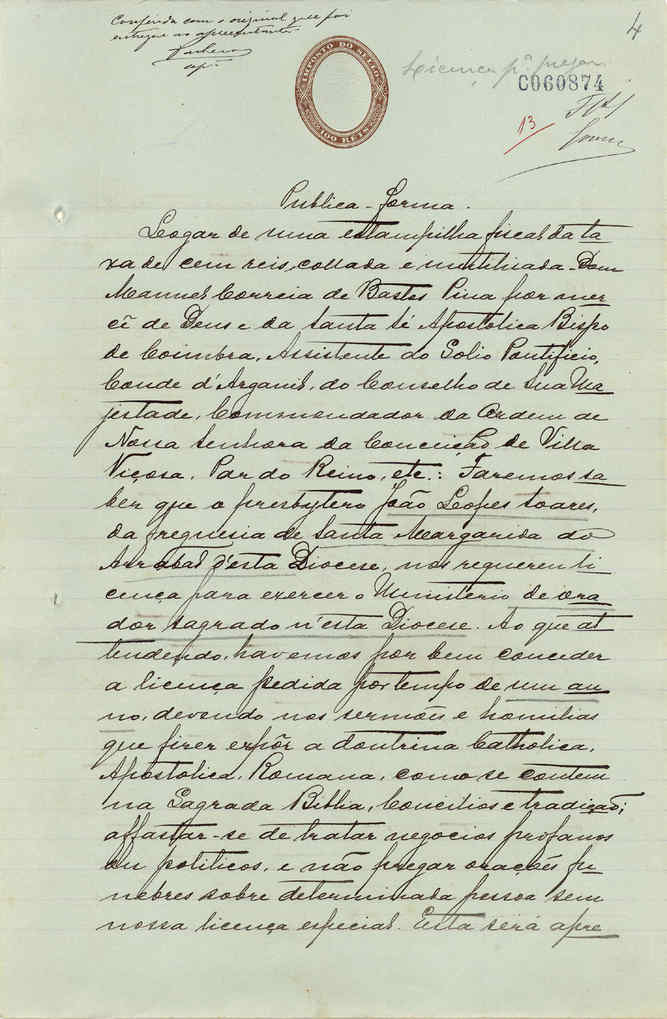 Conferida com o original que foi
entregue ao apresentante.
4
IMPOSTO DO SELLO
100 RÉIS
Licença pª. pregar
C060874
13
Publica-forma.
Logar de uma estampilha fiscal da ta
xa de cem reis, collada e inutilisada. Dom
Manuel Correia de Bastos Pina por mer
cê de Deus e da Santa Sé Apostolica Bispo
de Coimbra, Assistente do Solio Pontificio,
Conde d'Arganil, do Conselho de Sua Ma
jestade, Commendador da Ordem de
Nossa Senhora da Conceição de Villa
Viçosa, Par do Reino, etc.: Faremos sa
ber que o presbytero João Lopes Soares,
da freguesia de Santa Margarida do
Arrabal d'esta Diocese, nos requereu li
cença para exercer o Ministerio de ora
dor sagrado n'esta Diocese. Ao que at
tendendo, havemos por bem conceder
a licença pedida por tempo de um an
no, devendo nos sermões e homilias
que fizer expôr a doutrina Catholica,
Apostolica, Romana, como se contem
na Sagrada Biblia, Concilios e tradição;
affastar-se de tratar negocios profanos
ou politicos, e não pregar orações fu
nebres sobre determinada pessoa sem
nossa licença especial. Esta será apre